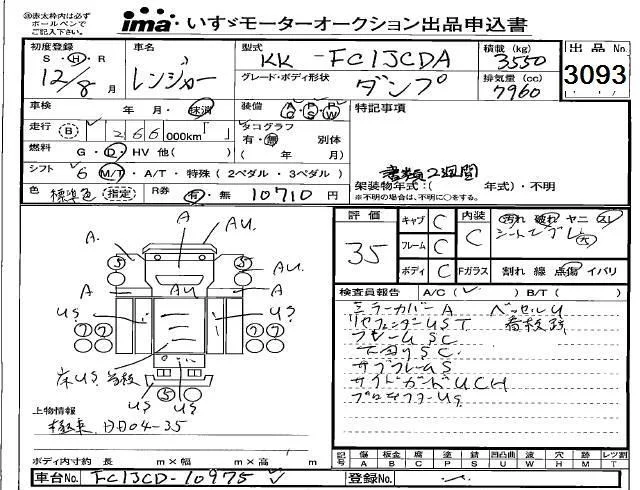 ※赤太枠内は必ず
ボールペンで
ご記入下さい。
ima いすゞモーターオークション出品申込書
初度登録 S・H・R 12/8月
車名 レンジャー
型式 KK-FC1JCDA
積載 (kg) 3550
出品No. 3093
グレード・ボディ形状 ダンプ
排気量 (cc) 7960
車検 年 月・抹消
装備 AC PS PW
特記事項
走行 B 266 000km
タコグラフ 有・無 別体 ( 年 月)
燃料 G・D・HV 他( )
書類2週間
シフト 6 M/T・A/T・特殊 (2ペダル・3ペダル)
架装物年式:( 年式)・不明
※不明の場合は、不明に○をする。
色 標準色 (指定) R券 有・無 10710円
評価 35
キャブ C
フレーム C
ボディ C
内装 C
汚れ 破れ ヤニ スレ
シート
Fガラス 割れ 線 点傷 イバリ
検査員報告 A/C( ) B/T( )
ミラーカバーA ベッセルU
リヤフェンダーUST 看板跡
フレームSC
下回りSC
サブフレームS
サイドガードUCH
A. A AU.
S S AU.
A A AU
US US
床US 看板
US US
S
上物情報
極東 DD04-35
ボディ内寸約 長 m×幅 m×高 m
記号 傷 A 板金 B 腐 C 塗 P 錆 S 凹凸曲 U 波 W 穴 H 跡 M レツ割 T
車台No. FC1JCD-10975
登録No.